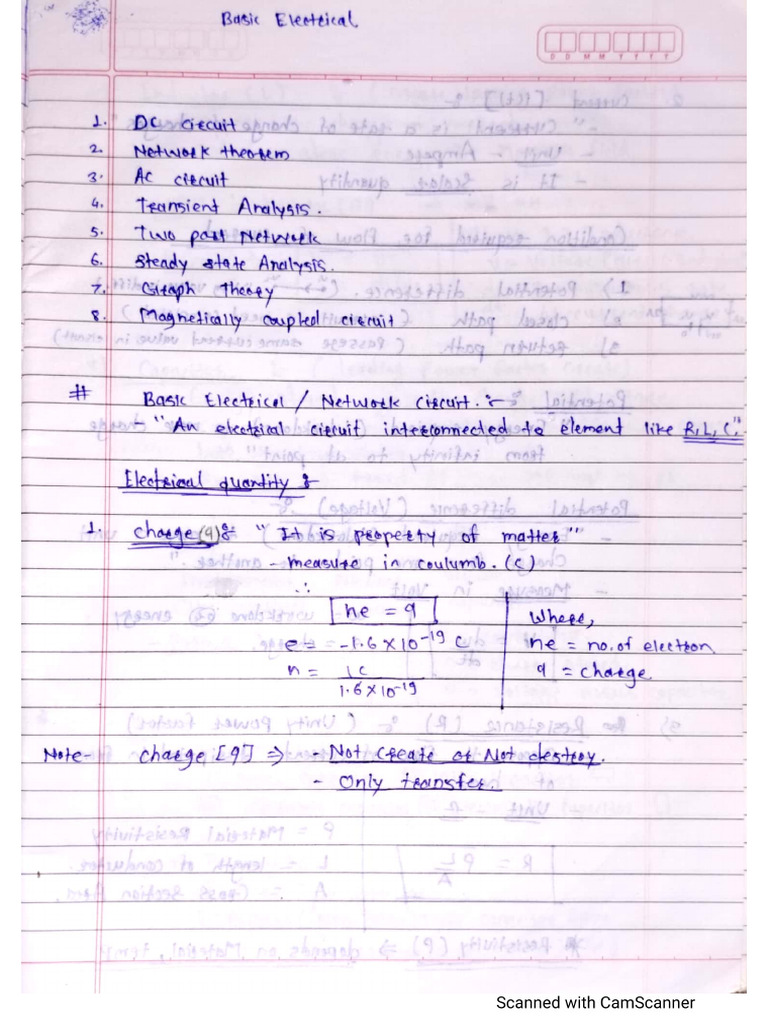 Basic Electrical
D D M M Y Y Y Y
1. DC circuit
2. Network theorem
3. AC circuit
4. Transient Analysis.
5. Two port Network
6. Steady state Analysis.
7. Graph Theory
8. Magnetically coupled circuit
# Basic Electrical / Network circuit. :-
- "An electrical circuit interconnected to element like R, L, C."
Electrical quantity :
1. charge (q) :- "It is property of matter"
- measure in coulumb. (C)
∴
ne = q
Where,
e = -1.6 × 10⁻¹⁹ C
ne = no. of electron
n = 1C / 1.6 × 10⁻¹⁹
q = charge
Note- charge [q] ⇒ - Not create or Not destroy.
- Only transfer.
Scanned with CamScanner